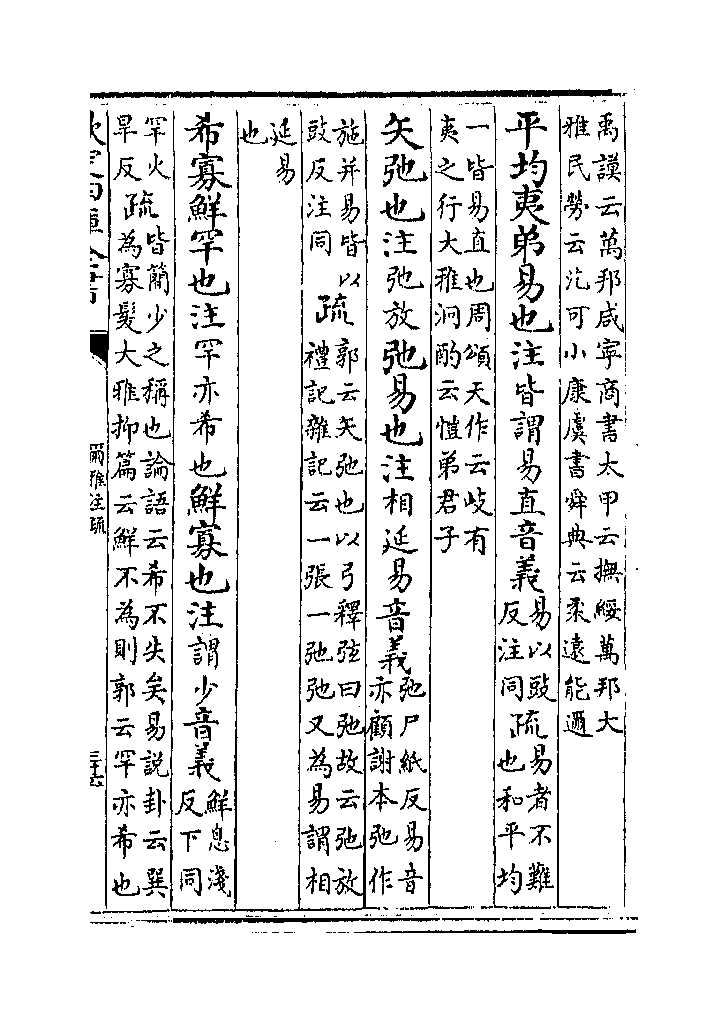 禹謨云萬邦咸寧商書太甲云撫綏萬邦大
雅民勞云汔可小康虞書舜典云柔遠能邇
平均夷弟易也注皆謂易直音義易以豉
反注同疏易者不難
也和平均
一皆易直也周頌天作云岐有
夷之行大雅泂酌云愷弟君子
矢弛也注弛放弛易也注相延易音義弛尸紙反易音
亦顧謝本弛作
施并易皆以
豉反注同疏郭云矢弛也以弓釋弦曰弛故云弛放
禮記雜記云一張一弛弛又為易謂相
延易
也
希寡鮮罕也注罕亦希也鮮寡也注謂少音義鮮息淺
反下同
罕火
旱反疏皆簡少之稱也論語云希不失矣易說卦云巽
為寡髮大雅抑篇云鮮不為則郭云罕亦希也
爾雅注疏
三十六